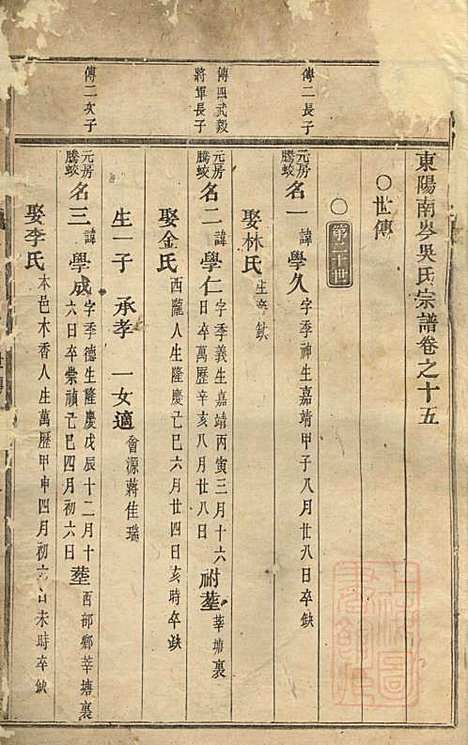 東陽南岑吳氏宗譜卷之十五
○世傳
○第二十世
傳二長子
元房騰蛟名一諱學久字季神生嘉靖甲子八月廿八日卒缺
娶林氏生卒缺
傳四武毅將軍長子
元房騰蛟名二諱學仁字季義生嘉靖丙寅三月十六日卒萬歷辛亥八月廿八日祔塟莘塘裏
娶金氏西隴人生隆慶己巳六月廿四日亥時卒缺
生一子承孝一女適會源蔣佳瑞
傳二次子
元房騰蛟名三諱學成字季德生隆慶戊辰十二月十六日卒崇禎己巳四月初六日塟西部鄉莘塘裏
娶李氏本邑木香人生萬歷甲申四月初六日未時卒缺